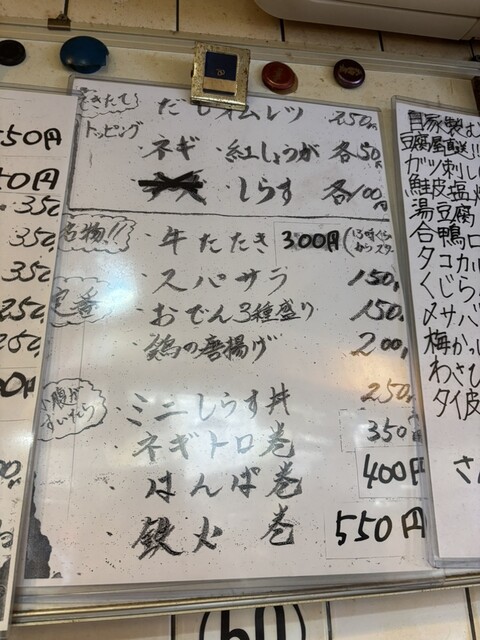 550円
50円
350
350
350
250
250
00円
できたて
・だしオムレツ 250円
トッピング
・ネギ・紅しょうが 各50円
・しらす 各100円
名物!!
・牛たたき 300円(13時ぐらいからスター
定番
・スパサラ 150
・おでん3種盛り 150
・鶏の唐揚げ 200
小腹が
すいたら
・ミニしらす丼 250
・ネギトロ巻 350
・はんぱ巻 400円
・鉄火巻 550円
自家製む
豆腐屋直送!!
ガツ刺し
鮭皮塩焼
湯豆腐
合鴨ロ
タコカル
くじら
〆サバ
梅かっ
わさび
タイ皮
さ